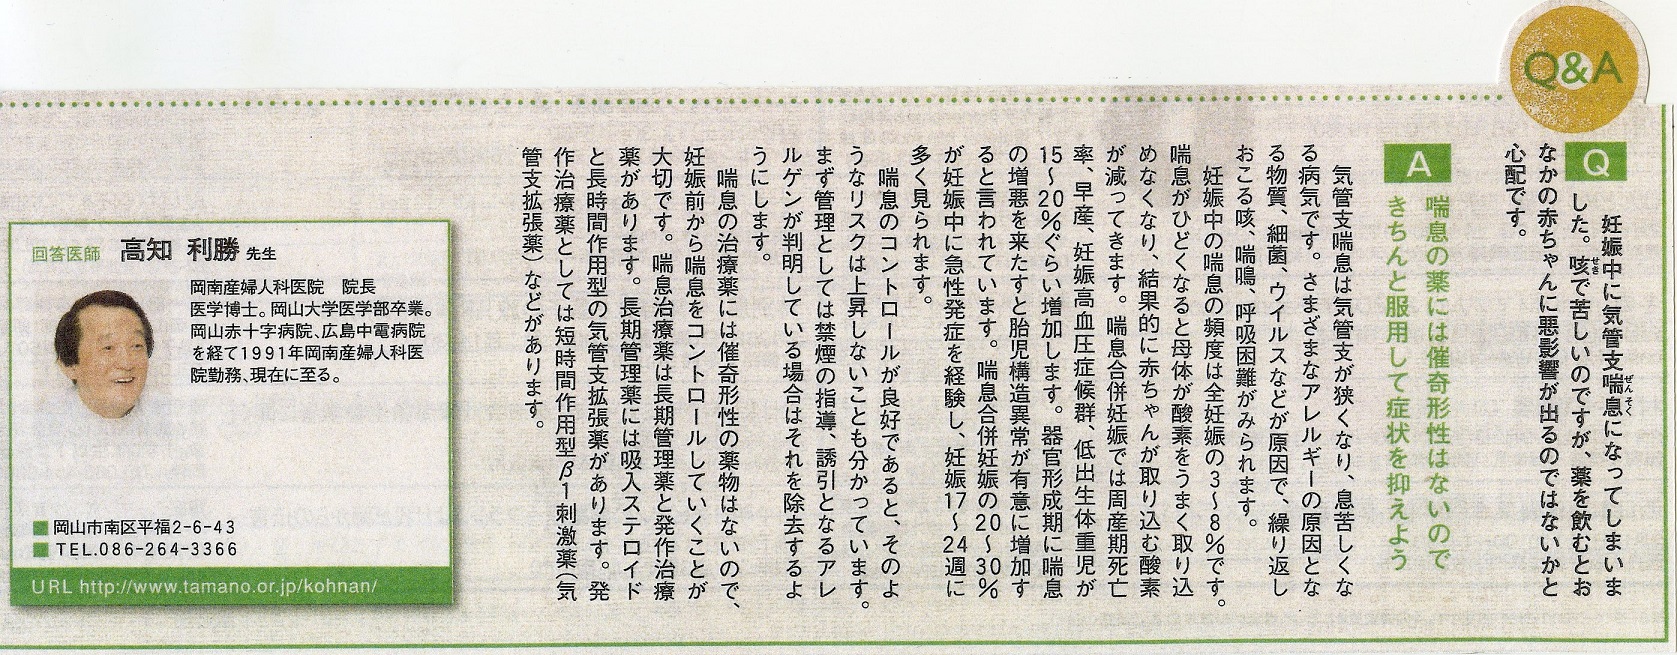 Q&A
Q 妊娠中に気管支喘息になってしまいま
した。咳で苦しいのですが、薬を飲むとお
なかの赤ちゃんに悪影響が出るのではないかと
心配です。
A 喘息の薬には催奇形性はないので
きちんと服用して症状を抑えよう
気管支喘息は気管支が狭くなり、息苦しくな
る病気です。さまざまなアレルギーの原因とな
る物質、細菌、ウイルスなどが原因で、繰り返し
おこる咳、喘鳴、呼吸困難がみられます。
妊娠中の喘息の頻度は全妊娠の3〜8%です。
喘息がひどくなると母体が酸素をうまく取り込
めなくなり、結果的に赤ちゃんが取り込む酸素
が減ってきます。喘息合併妊娠では周産期死亡
率、早産、妊娠高血圧症候群、低出生体重児が
15〜20%ぐらい増加します。器官形成期に喘息
の増悪を来たすと胎児構造異常が有意に増加す
ると言われています。喘息合併妊娠の20〜30%
が妊娠中に急性発症を経験し、妊娠17〜24週に
多く見られます。
喘息のコントロールが良好であると、そのよ
うなリスクは上昇しないことも分かっています。
まず管理としては禁煙の指導、誘引となるアレ
ルゲンが判明している場合はそれを除去するよ
うにします。
喘息の治療薬には催奇形性の薬物はないので、
妊娠前から喘息をコントロールしていくことが
大切です。喘息治療薬は長期管理薬と発作治療
薬があります。長期管理薬には吸入ステロイド
と長時間作用型の気管支拡張薬があります。発
作治療薬としては短時間作用型β1刺激薬(気
管支拡張薬)などがあります。
回答医師 高知 利勝 先生
岡南産婦人科医院 院長
医学博士。岡山大学医学部卒業。
岡山赤十字病院、広島中電病院
を経て1991年岡南産婦人科医
院勤務、現在に至る。
■岡山市南区平福2-6-43
■TEL.086-264-3366
URL http://www.tamano.or.jp/kohnan/